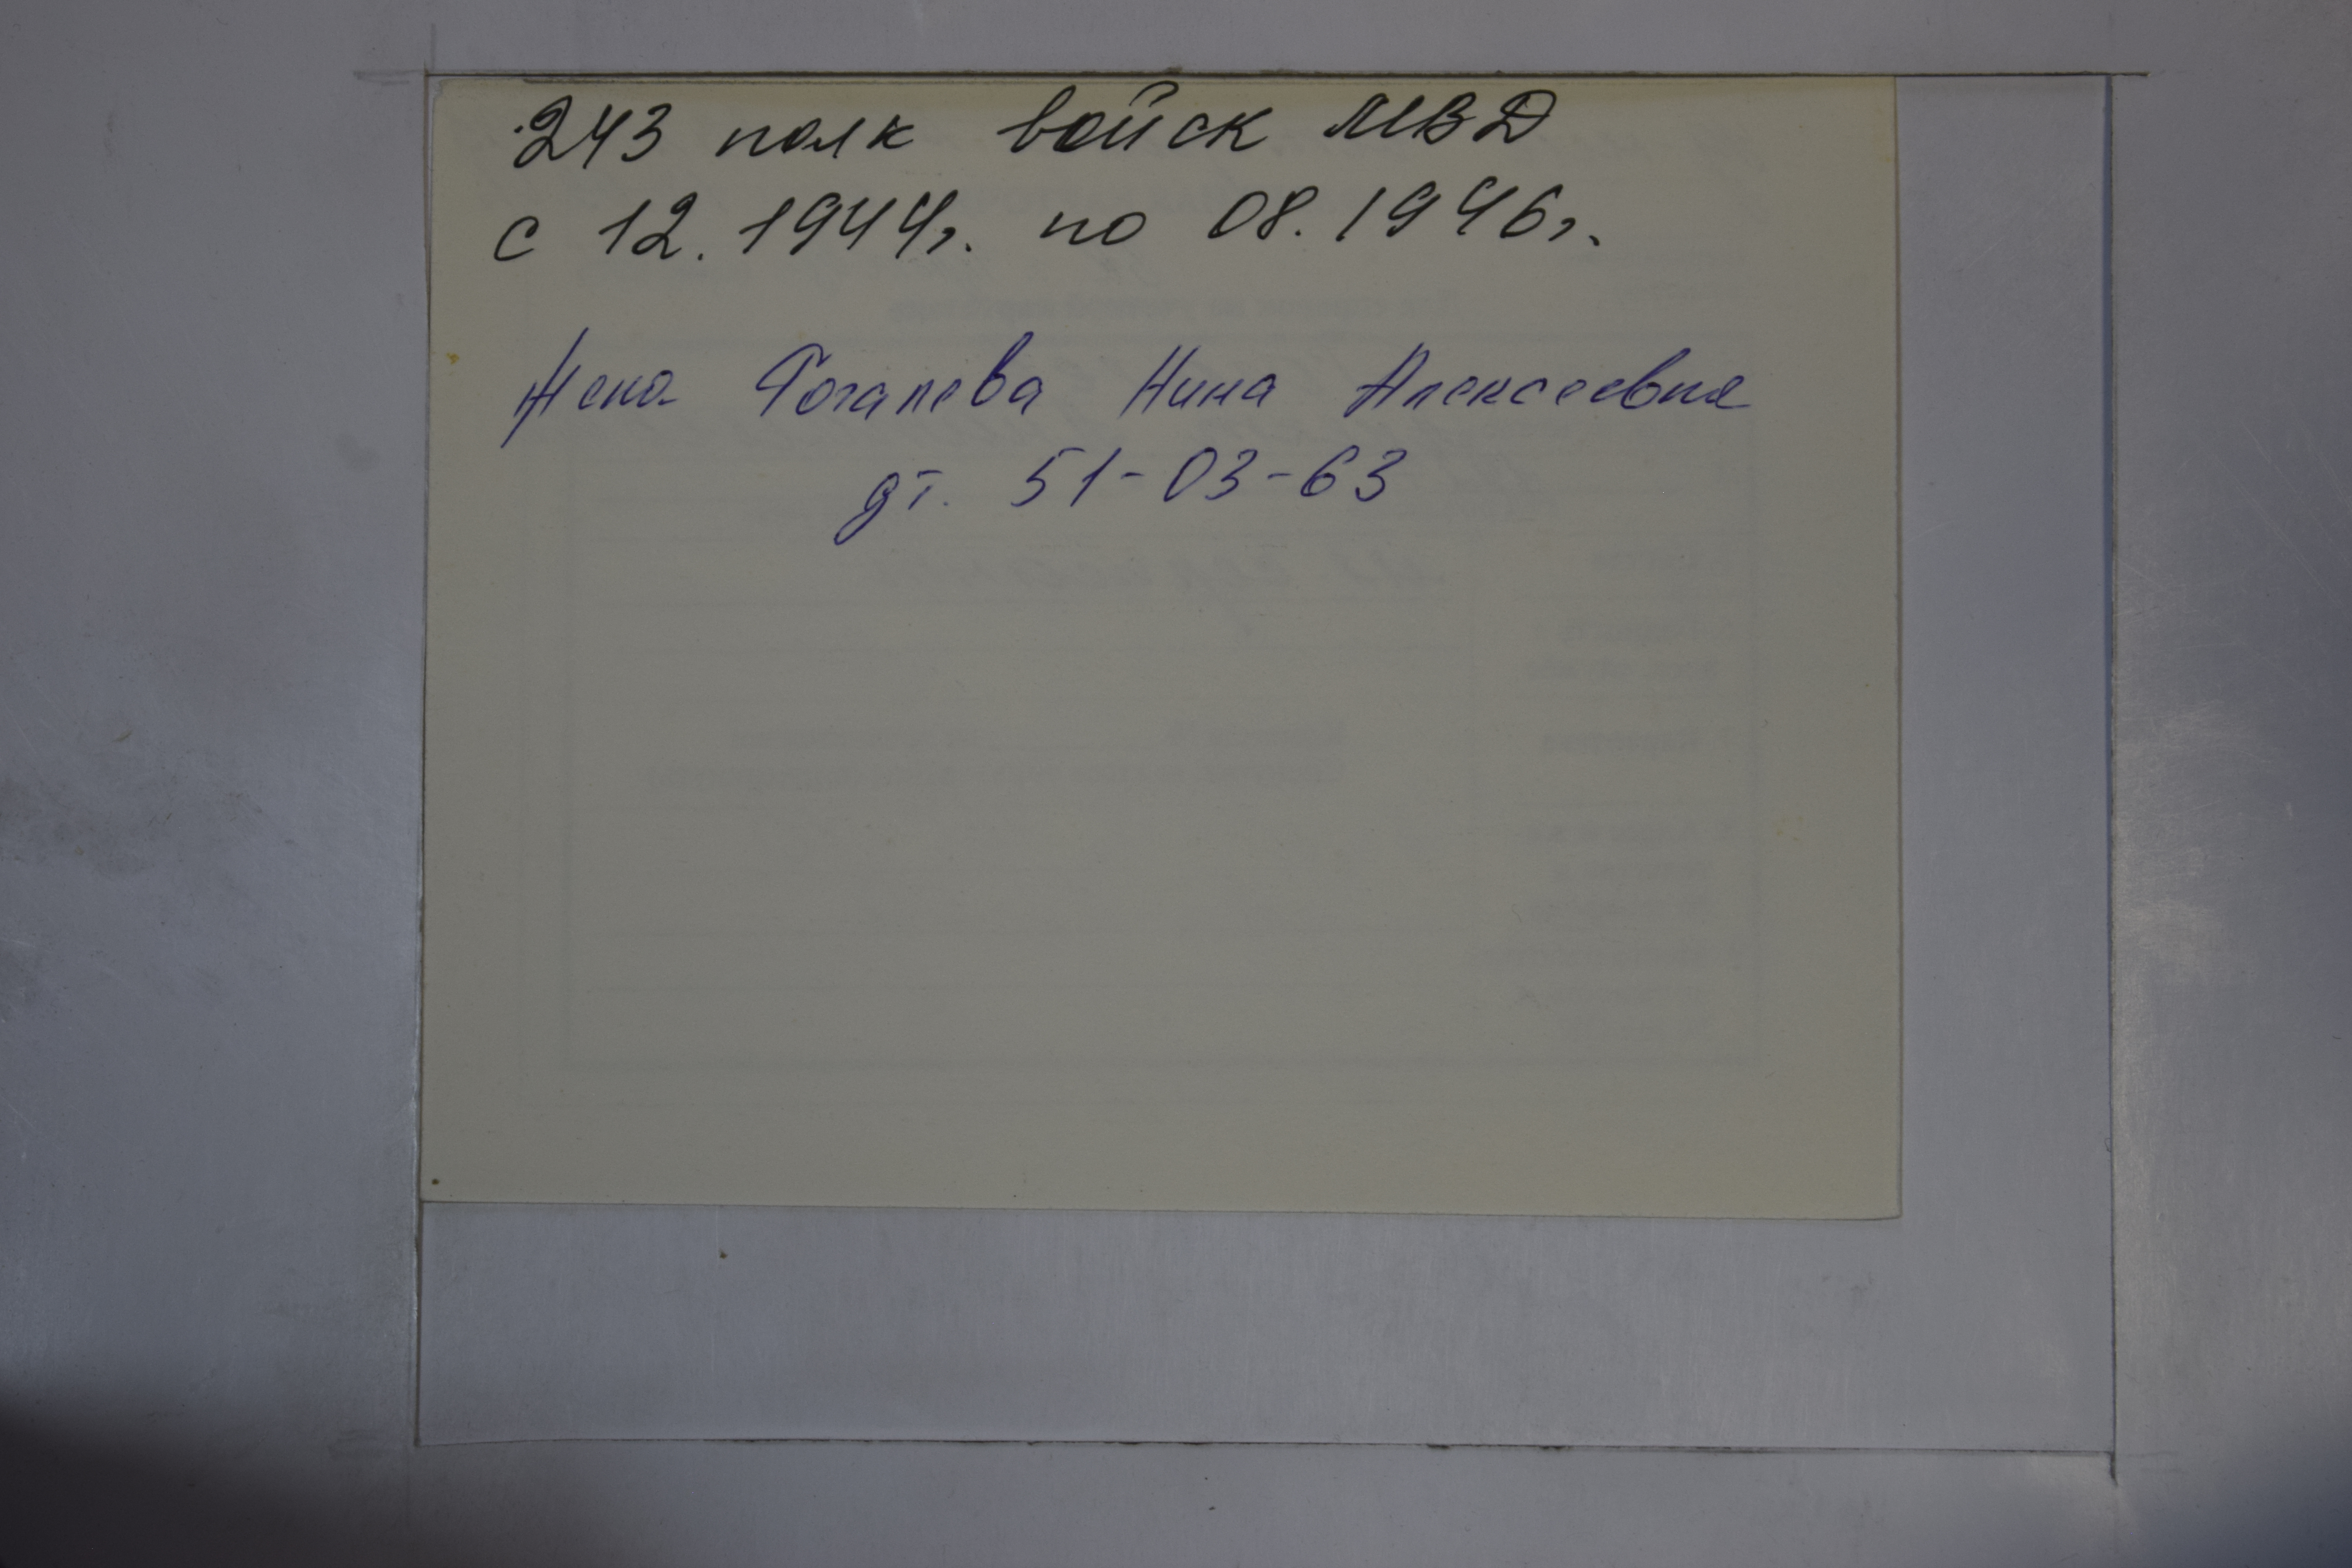 243 полк войск МВД
с 12.1944г. по 08.1946г.
Жена Нина Алексеевна
дт. 51-03-63